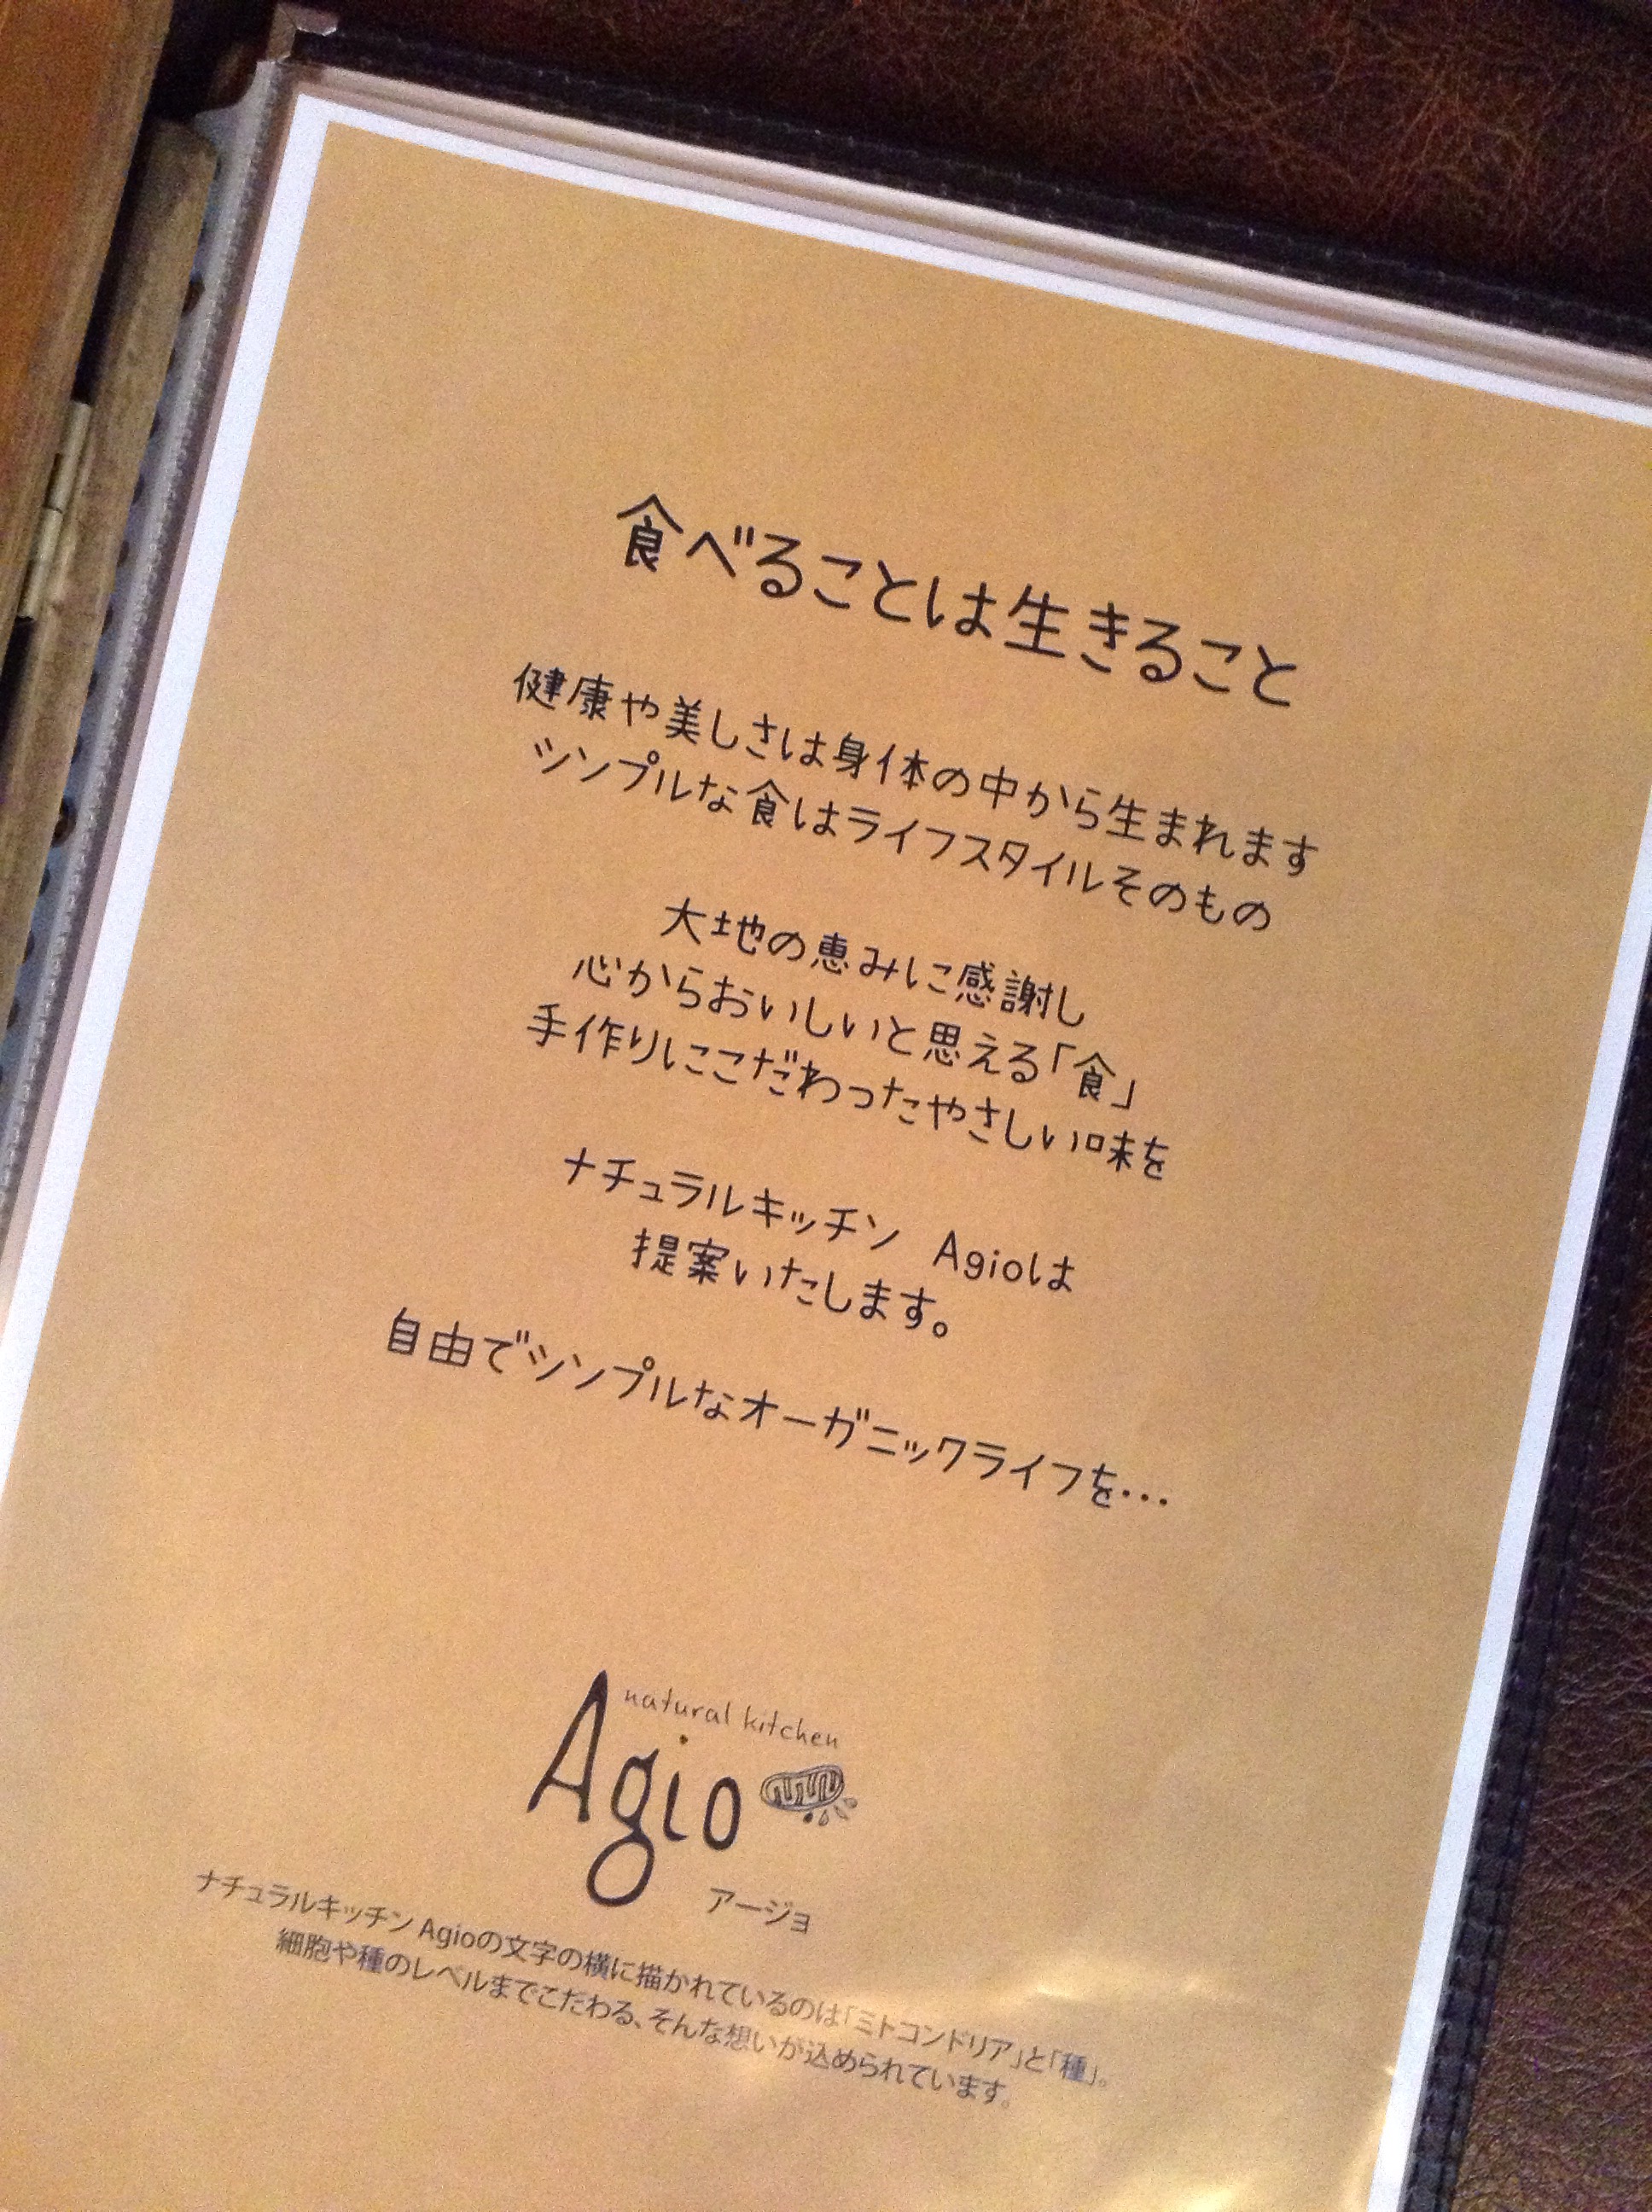 食べることは生きること
健康や美しさは身体の中から生まれます
シンプルな食はライフスタイルそのもの
大地の恵みに感謝し
心からおいしいと思える「食」
手作りにこだわったやさしい味を
ナチュラルキッチン Agioは
提案いたします。
自由でシンプルなオーガニックライフを…
natural kitchen
Agio
アージョ
ナチュラルキッチン Agioの文字の横に描かれているのは「ミトコンドリア」と「種」。
細胞や種のレベルまでこだわる、そんな想いが込められています。